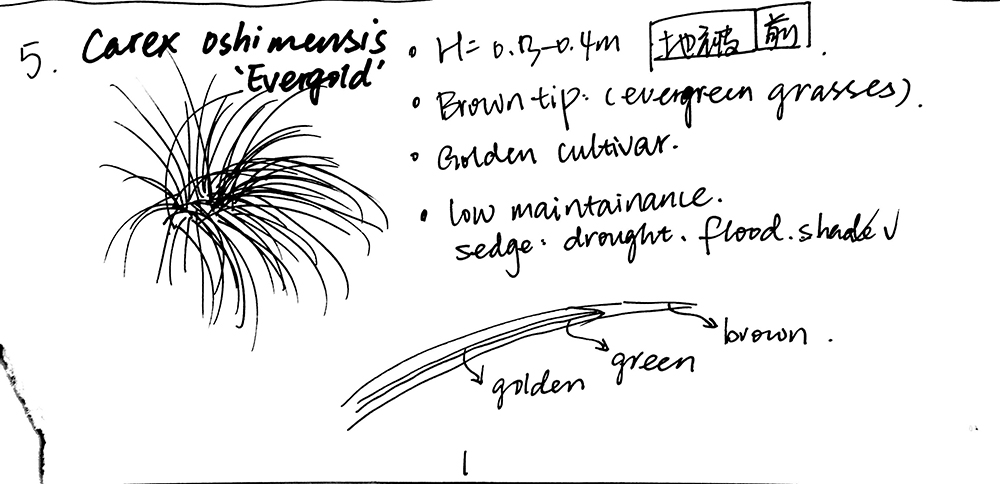 5. Carex oshimensis
'Evergold'
• H= 0.13-0.4m 地被 前.
• Brown tip. (evergreen grasses).
• Golden cultivar.
• low maintainance.
sedge. drought. flood. shade √
brown.
green
golden